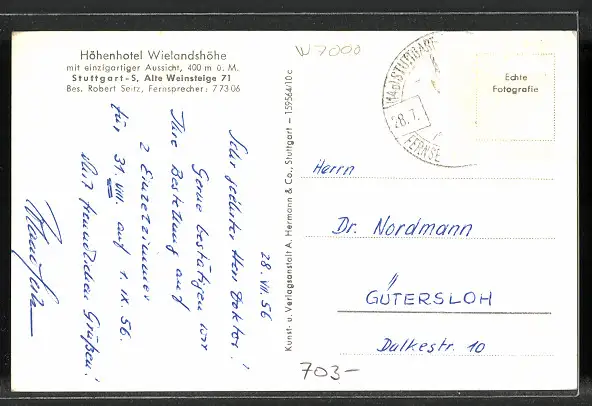 Höhenhotel Wielandshöhe
mit einzigartiger Aussicht, 400 m ü. M.
Stuttgart-S, Alte Weinsteige 71
Bes. Robert Seitz, Fernsprecher: 7 73 06
28. VII 56
Sehr geehrter Herr Doktor!
Gerne bestätigen wir
Ihre Bestellung auf
2 Einzelzimmer
für 31. VIII auf 1. IX 56.
Mit freundlichen Grüßen!
Kunst- u. Verlagsanstalt A. Hermann & Co., Stuttgart – 159564/10c
W7000
(14a) STUTTGART
28.7.
FERNSE
Echte
Fotografie
Herrn
Dr. Nordmann
GÜTERSLOH
Dalkestr. 10
703-